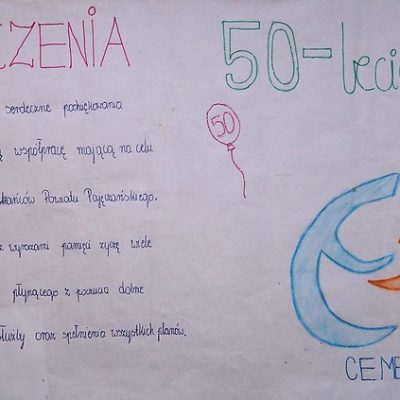 CZENIA
50-leci
serdeczne podziękowania
50
współpracę mającą na celu
kańców Powiatu Pajęczańskiego.
z wyrazami pamięci życzę wiele
płynącego z poczucia dobrze
służby oraz spełnienia wszystkich planów.
CEME